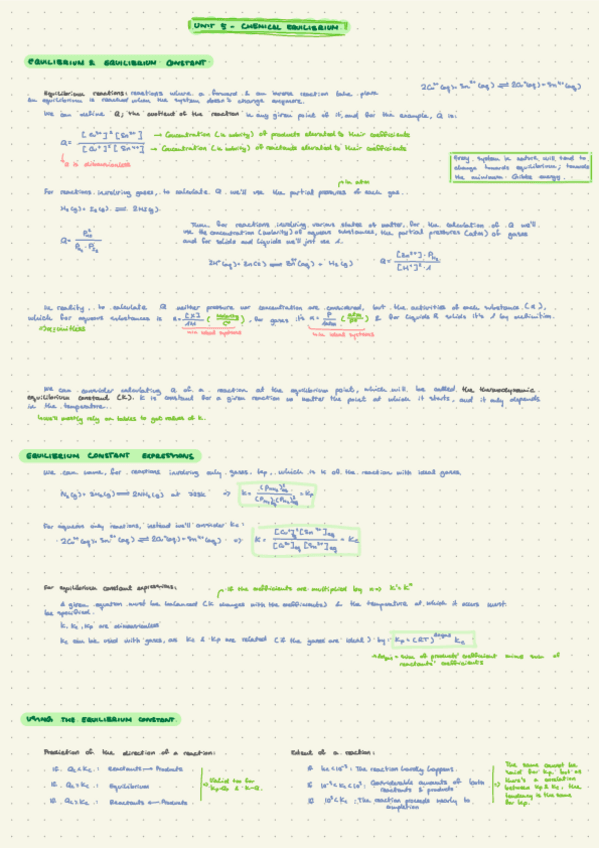 UNIT 5 - CHEMICAL EQUILIBRIUM
EQUILIBRIUM & EQUILIBRIUM CONSTANT
Equilibrium reactions: reactions where a forward & an inverse reaction take place
An equilibrium is reached when the system doesn't change anymore.
2Cu²⁺(aq) + Sn²⁺(aq) ⇌ 2Cu⁺(aq) + Sn⁴⁺(aq)
We can define Q, the quotient of the reaction in any given point of it, and for the example, Q is:
→ Concentration (molarity) of products elevated to their coefficients
→ Concentration (molarity) of reactants elevated to their coefficients
Q is dimensionless
Every system in nature will tend to
change towards equilibrium; towards
the minimum Gibbs energy.
in atm
For reactions involving gases, to calculate Q we'll use the partial pressures of each gas.
H₂(g) + I₂(g) ⇌ 2HI(g)
Then, for reactions involving various states of matter, for the calculation of Q we'll
use the concentration (molarity) of aqueous substances, the partial pressures (atm) of gases
and for solids and liquids we'll just use 1
2H⁺(aq) + Zn(s) ⇌ Zn²⁺(aq) + H₂(g) Q = [Zn²⁺]·P_H₂ / [H⁺]²·1
In reality, to calculate Q neither pressure nor concentration are considered, but the activities of each substance (a),
which for aqueous substances is a = [X] / 1M, for gases it's a = P / 1atm & for liquids & solids it's 1 by definition.
in ideal systems in ideal systems
We can consider calculating Q of a reaction at the equilibrium point, which will be called the thermodynamic
equilibrium constant (K). K is constant for a given reaction no matter the point at which it starts, and it only depends
in the temperature.
mostly rely on tables to get values of K
EQUILIBRIUM CONSTANT EXPRESSIONS
We can name, for reactions involving only gases, Kp, which is K of the reaction with ideal gases
N₂(g) + 3H₂(g) ⇌ 2NH₃(g) at 298K ⇒ K = (P_NH₃)²eq / (P_N₂)eq (P_H₂)³eq = Kp
For aqueous only reactions, instead we'll consider Kc:
2Cu²⁺(aq) + Sn²⁺(aq) ⇌ 2Cu⁺(aq) + Sn⁴⁺(aq) ⇒ K = [Cu⁺]²eq [Sn⁴⁺]eq / [Cu²⁺]²eq [Sn²⁺]eq = Kc
For equilibrium constant expressions:
if the coefficients are multiplied by n ⇒ K' = Kⁿ
A given equation must be balanced (K changes with the coefficients) & the temperature at which it occurs must
be specified.
K, Kc, Kp are dimensionless
Kc can be used with gases, as Kc & Kp are related (if the gases are ideal) by: Kp = (RT) Kc
= sum of products' coefficient minus sum of
reactants' coefficients
USING THE EQUILIBRIUM CONSTANT
Prediction of the direction of a reaction:
If Qc < Kc : Reactants → Products
If Qc = Kc : Equilibrium
If Qc > Kc : Reactants ← Products
Valid too for
Kp-Qp & K-Q.
Extent of a reaction:
If Kc < 10⁻³: The reaction barely happens.
If 10⁻³ < Kc < 10³: Considerable amounts of both
reactants & products
If 10³ < Kc : The reaction proceeds nearly to
completion
The same cannot be
said for Kp, but as
there's a correlation
between Kp & Kc, the
tendency is the same
for Kp.